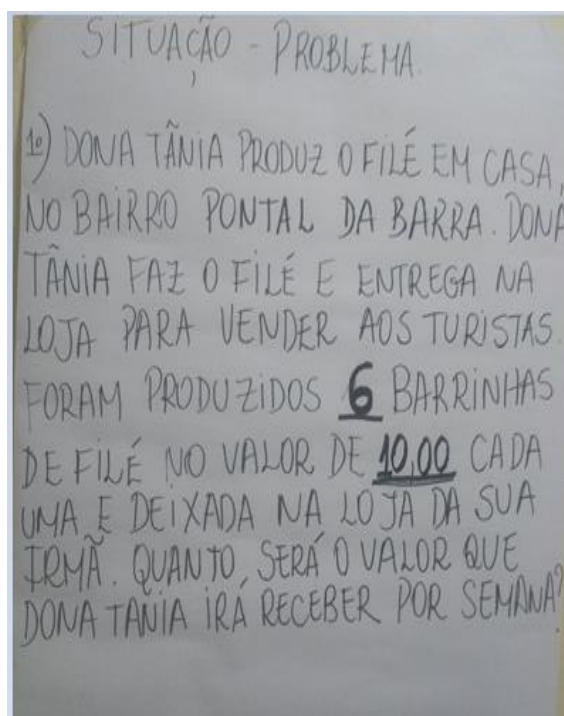 SITUAÇÃO - PROBLEMA.
1º) DONA TÂNIA PRODUZ O FILÉ EM CASA,
NO BAIRRO PONTAL DA BARRA. DONA
TÂNIA FAZ O FILÉ E ENTREGA NA
LOJA PARA VENDER AOS TURISTAS.
FORAM PRODUZIDOS 6 BARRINHAS
DE FILÉ NO VALOR DE 10,00 CADA
UMA E DEIXADA NA LOJA DA SUA
IRMÃ. QUANTO, SERÁ O VALOR QUE
DONA TANIA IRÁ RECEBER POR SEMANA?